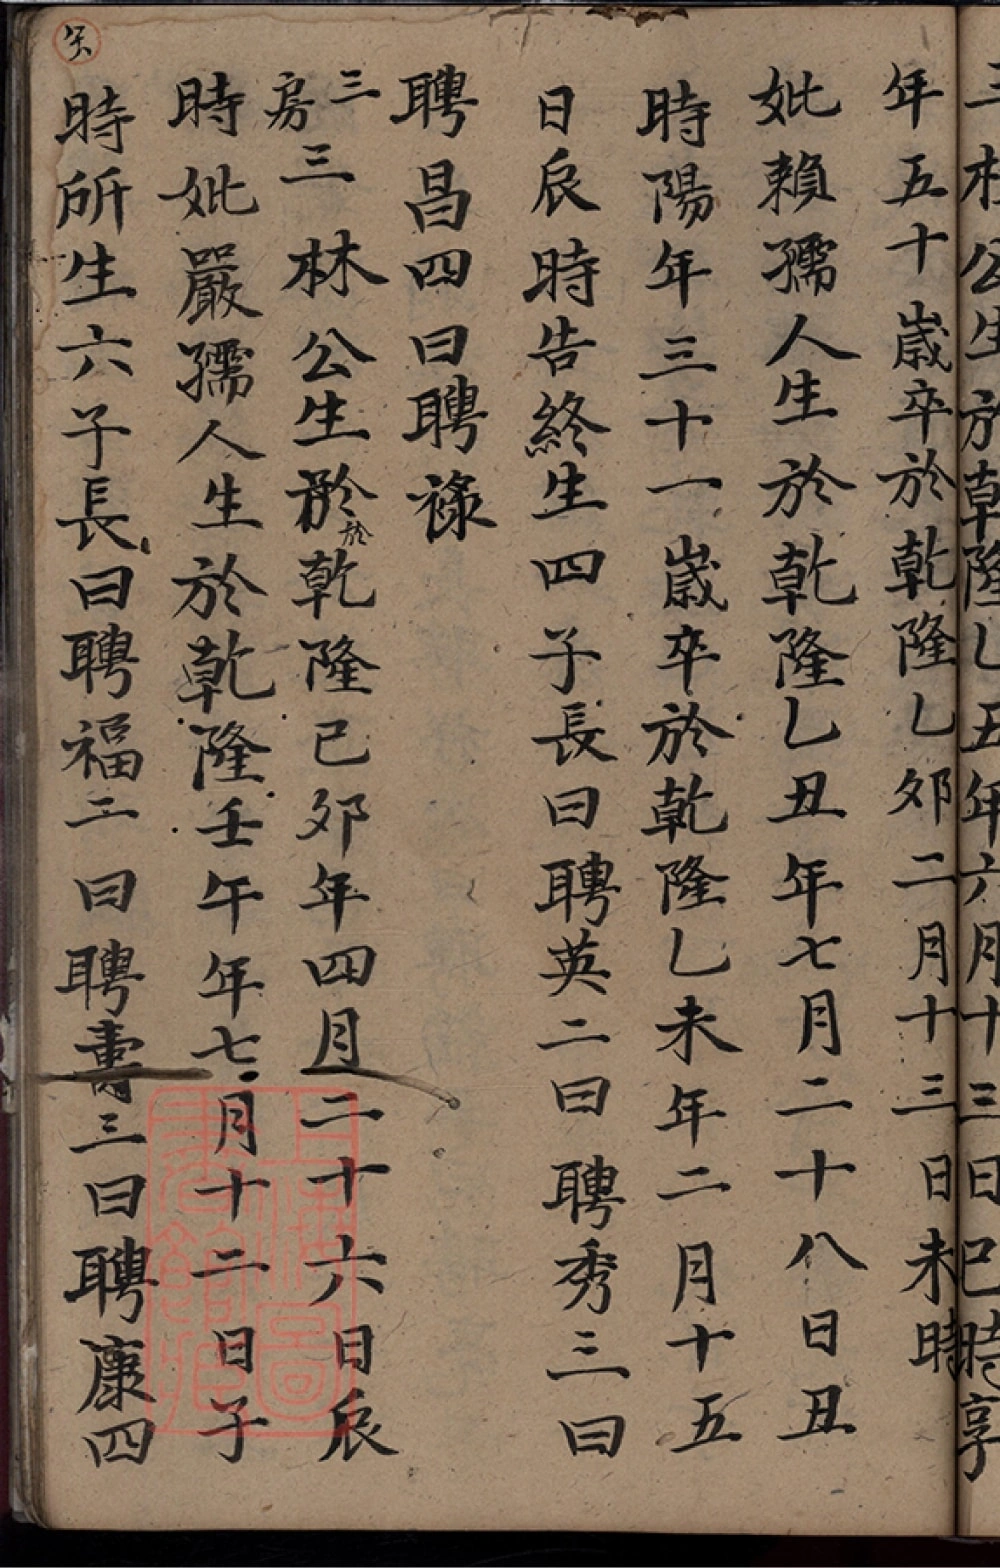 三林公生於乾隆乙丑年六月十三日巳時享
年五十歲卒於乾隆乙夘二月十三日未時
妣賴孺人生於乾隆乙丑年七月二十八日丑
時陽年三十一歲卒於乾隆乙未年二月十五
日辰時告終生四子長曰聘英二曰聘秀三曰
聘昌四曰聘祿
三房三林公生於於乾隆己夘年四月二十六日辰
時妣嚴孺人生於乾隆壬午年七月十二日子
時所生六子長曰聘福二曰聘壽三曰聘康四
上海圖書館藏